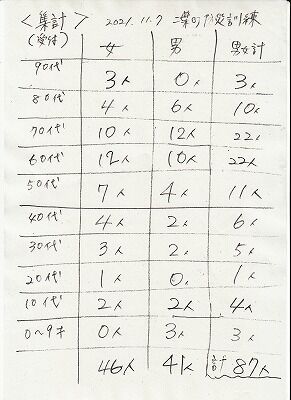 <集計> 2021.11.7 二葉町防災訓練
(受付) 女 男 男女計
90代 3人 0人 3人
80代 4人 6人 10人
70代 10人 12人 22人
60代 12人 10人 22人
50代 7人 4人 11人
40代 4人 2人 6人
30代 3人 2人 5人
20代 1人 0人 1人
10代 2人 2人 4人
0~9才 0人 3人 3人
46人 41人 計 87人